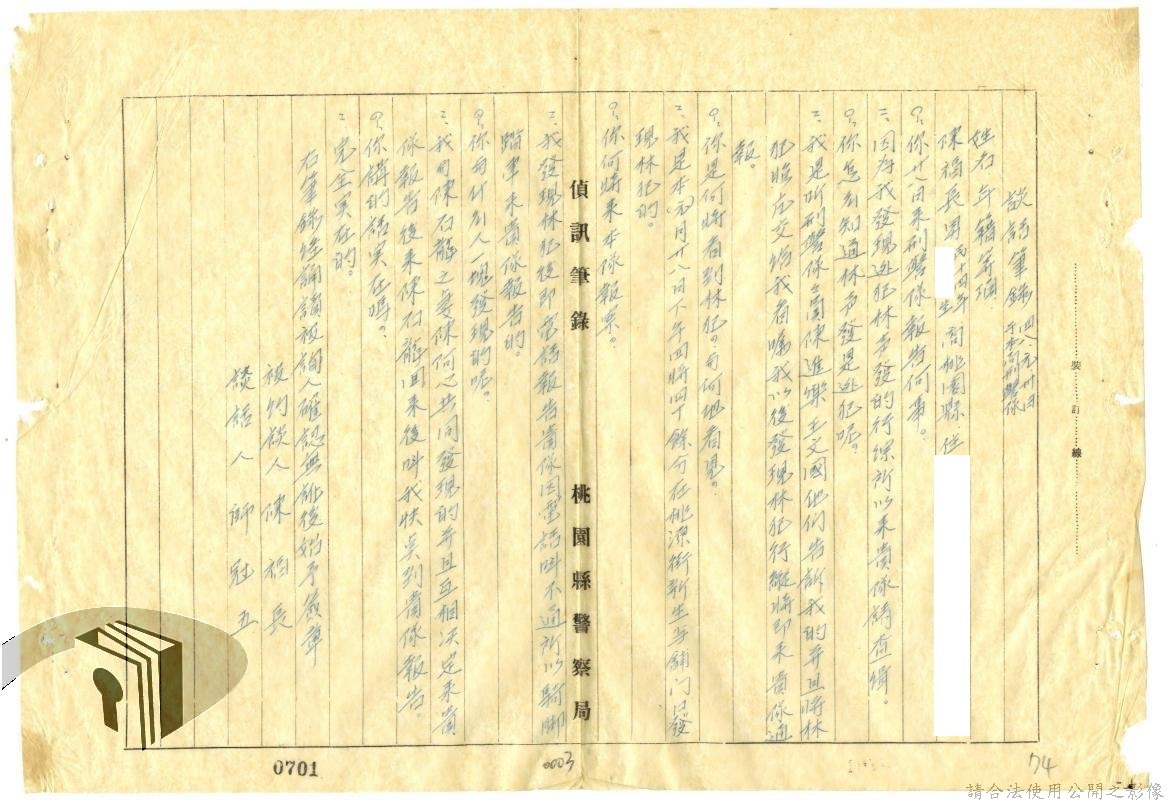 談話筆錄 四八元卅日
于本局刑警隊
姓名年籍等項
陳福長 男 丙十四年 生 商 桃園縣 住
問:你廿八日來刑警隊報告何事。
二:因為我發現逃犯林声發的行踪所以來貴隊鋳查緝。
問:你怎么知道林声發是逃犯呢。
二:我是听刑警隊之員陳進樂王文國他們告訴我的并且將林
犯臨庄交給我看嘱我以後發現林犯行縱時即來貴隊通
報。
問:你是何時看到林犯。內何地看見。
二:我是本(元)月廿八日下午四時四十餘分在桃源街新生与舖门口發
現林犯的。
問:你何時來本隊報案。
二:我發現林犯後即電話報告貴隊因電話叫不通所以騎脚
踏車來貴隊報告的。
問:你与什么人一塊發現的呢。
二:我与陳石龍之妻陳何心共同發現的并且互相决定來貴
隊報告後來陳石龍回來後叫我快点到貴隊報告。
問:你講的話实在嗎。
二:完全实在的。
右筆錄經朗讀被詢人確認無訛後始予簽章
被約談人 陳福長
談話人 師冠五
偵訊筆錄 桃園縣警察局
裝訂線
0701
0003
74
請合法使用公開之影像